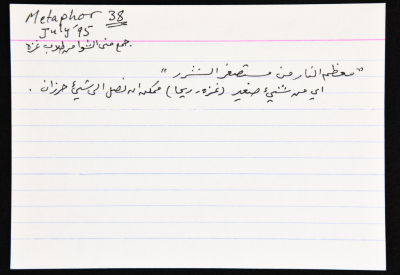 Metaphor 38
July '95
جمع منى الشوا من طلاب غزة
"معظم النار من مستصغر الشرر"
اي من شيئ صغير (غزة - ريحا) ممكن ان نصل الى شيئ حرزان .